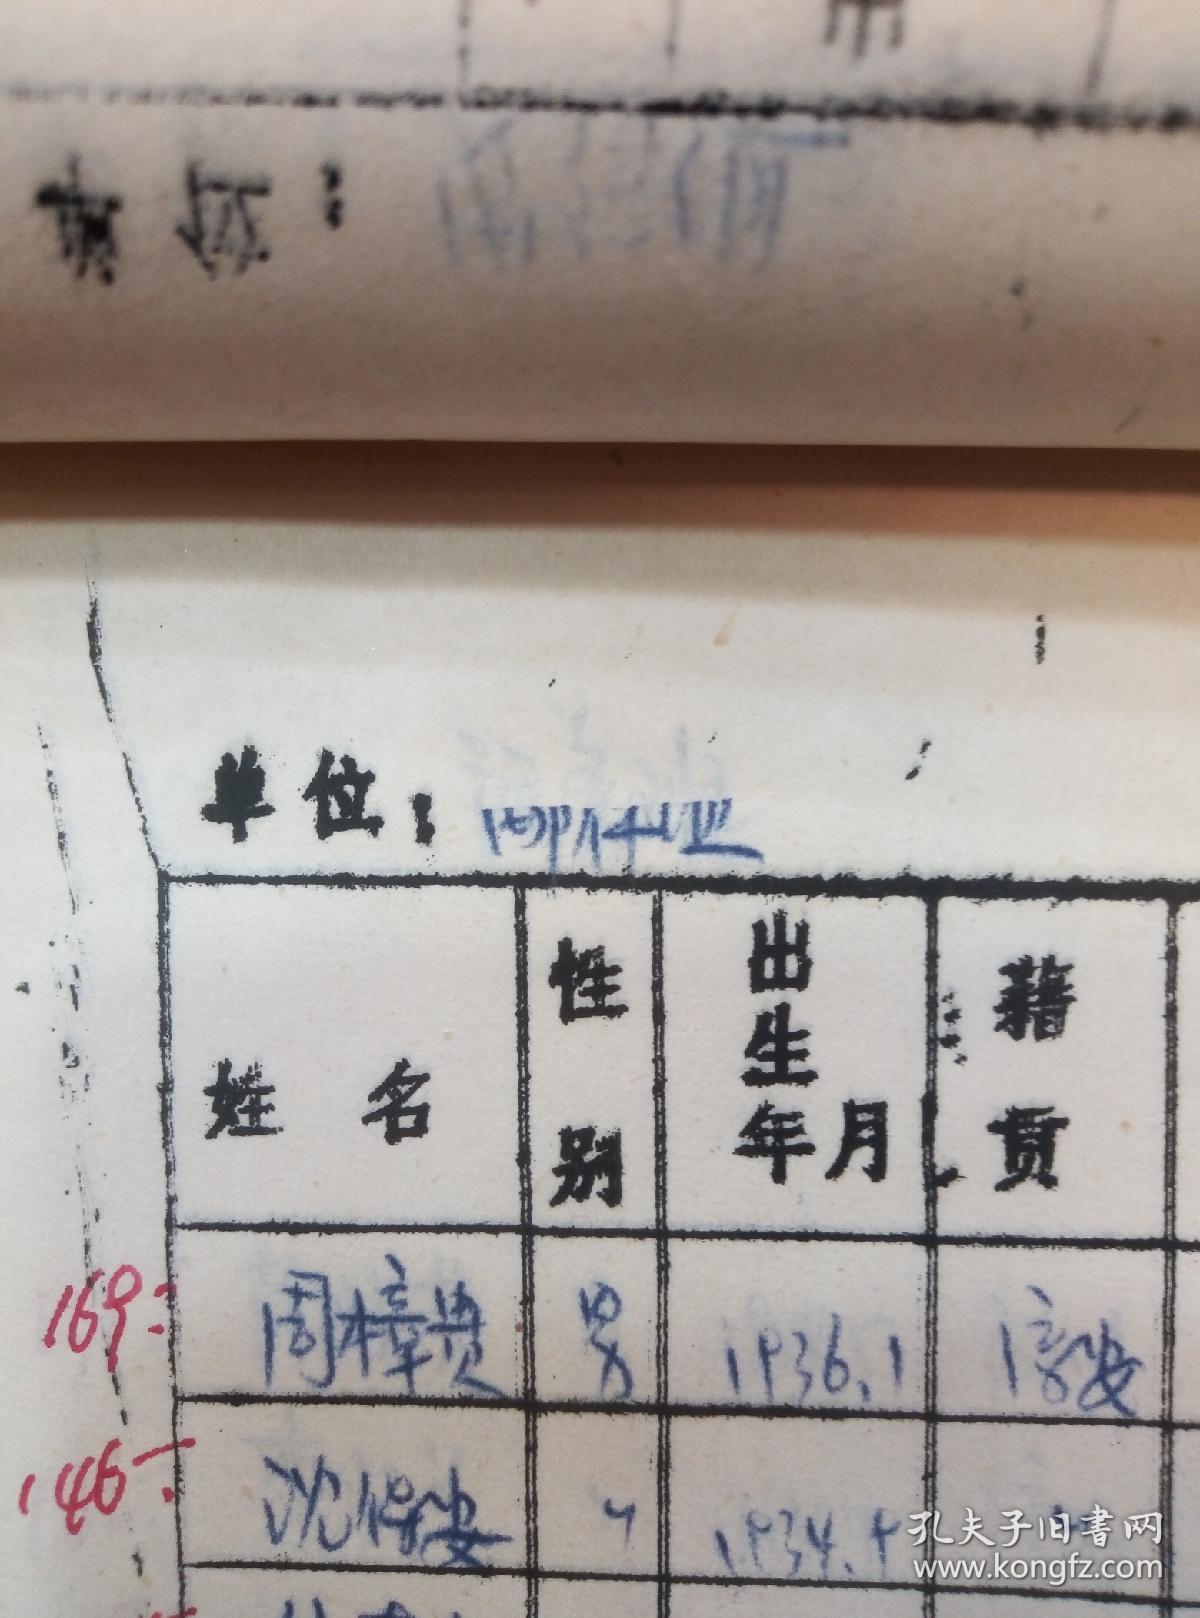 单位：
单位：
姓名 性别 出生年月 藉贯
169 周樟贵 男 1936.1 淳安
146 沈保安 〃 1934.9 〃
孔夫子旧书网
www.kongfz.com